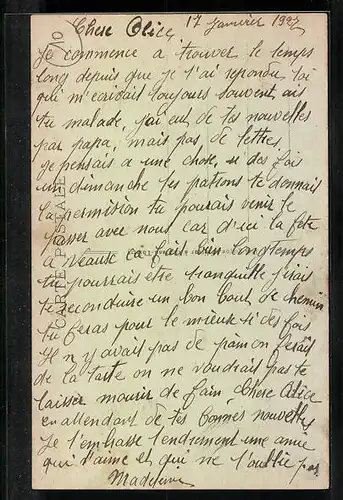 17 janvier 1937
Chere Alice,
Je commence a trouver le temps
long depuis que je t'ai repondu, toi
qui m'ecrivait toujours souvent, ais
tu malade, j'ai eut de tes nouvelles
par papa, mais pas de lettres,
je pensais a une chose, si des fois
un dimanche tes patrons te donnait
la permission tu pourais venir le
passer avec nous car d'ici la fete
a ça fait bien longtemps
tu pourrais etre tranquille j'irais
te reconduire un bon bout de chemin
tu feras pour le mieux si des fois
il n'y avait pas de pain on ferait
de la tarte on ne voudrait pas te
laisser mourir de faim, Chere Alice
en attendant de tes bonnes nouvelles
je t'embrasse tendrement une amie
qui t'aime et qui ne t'oublie pas
Madeleine
CARTE POSTALE